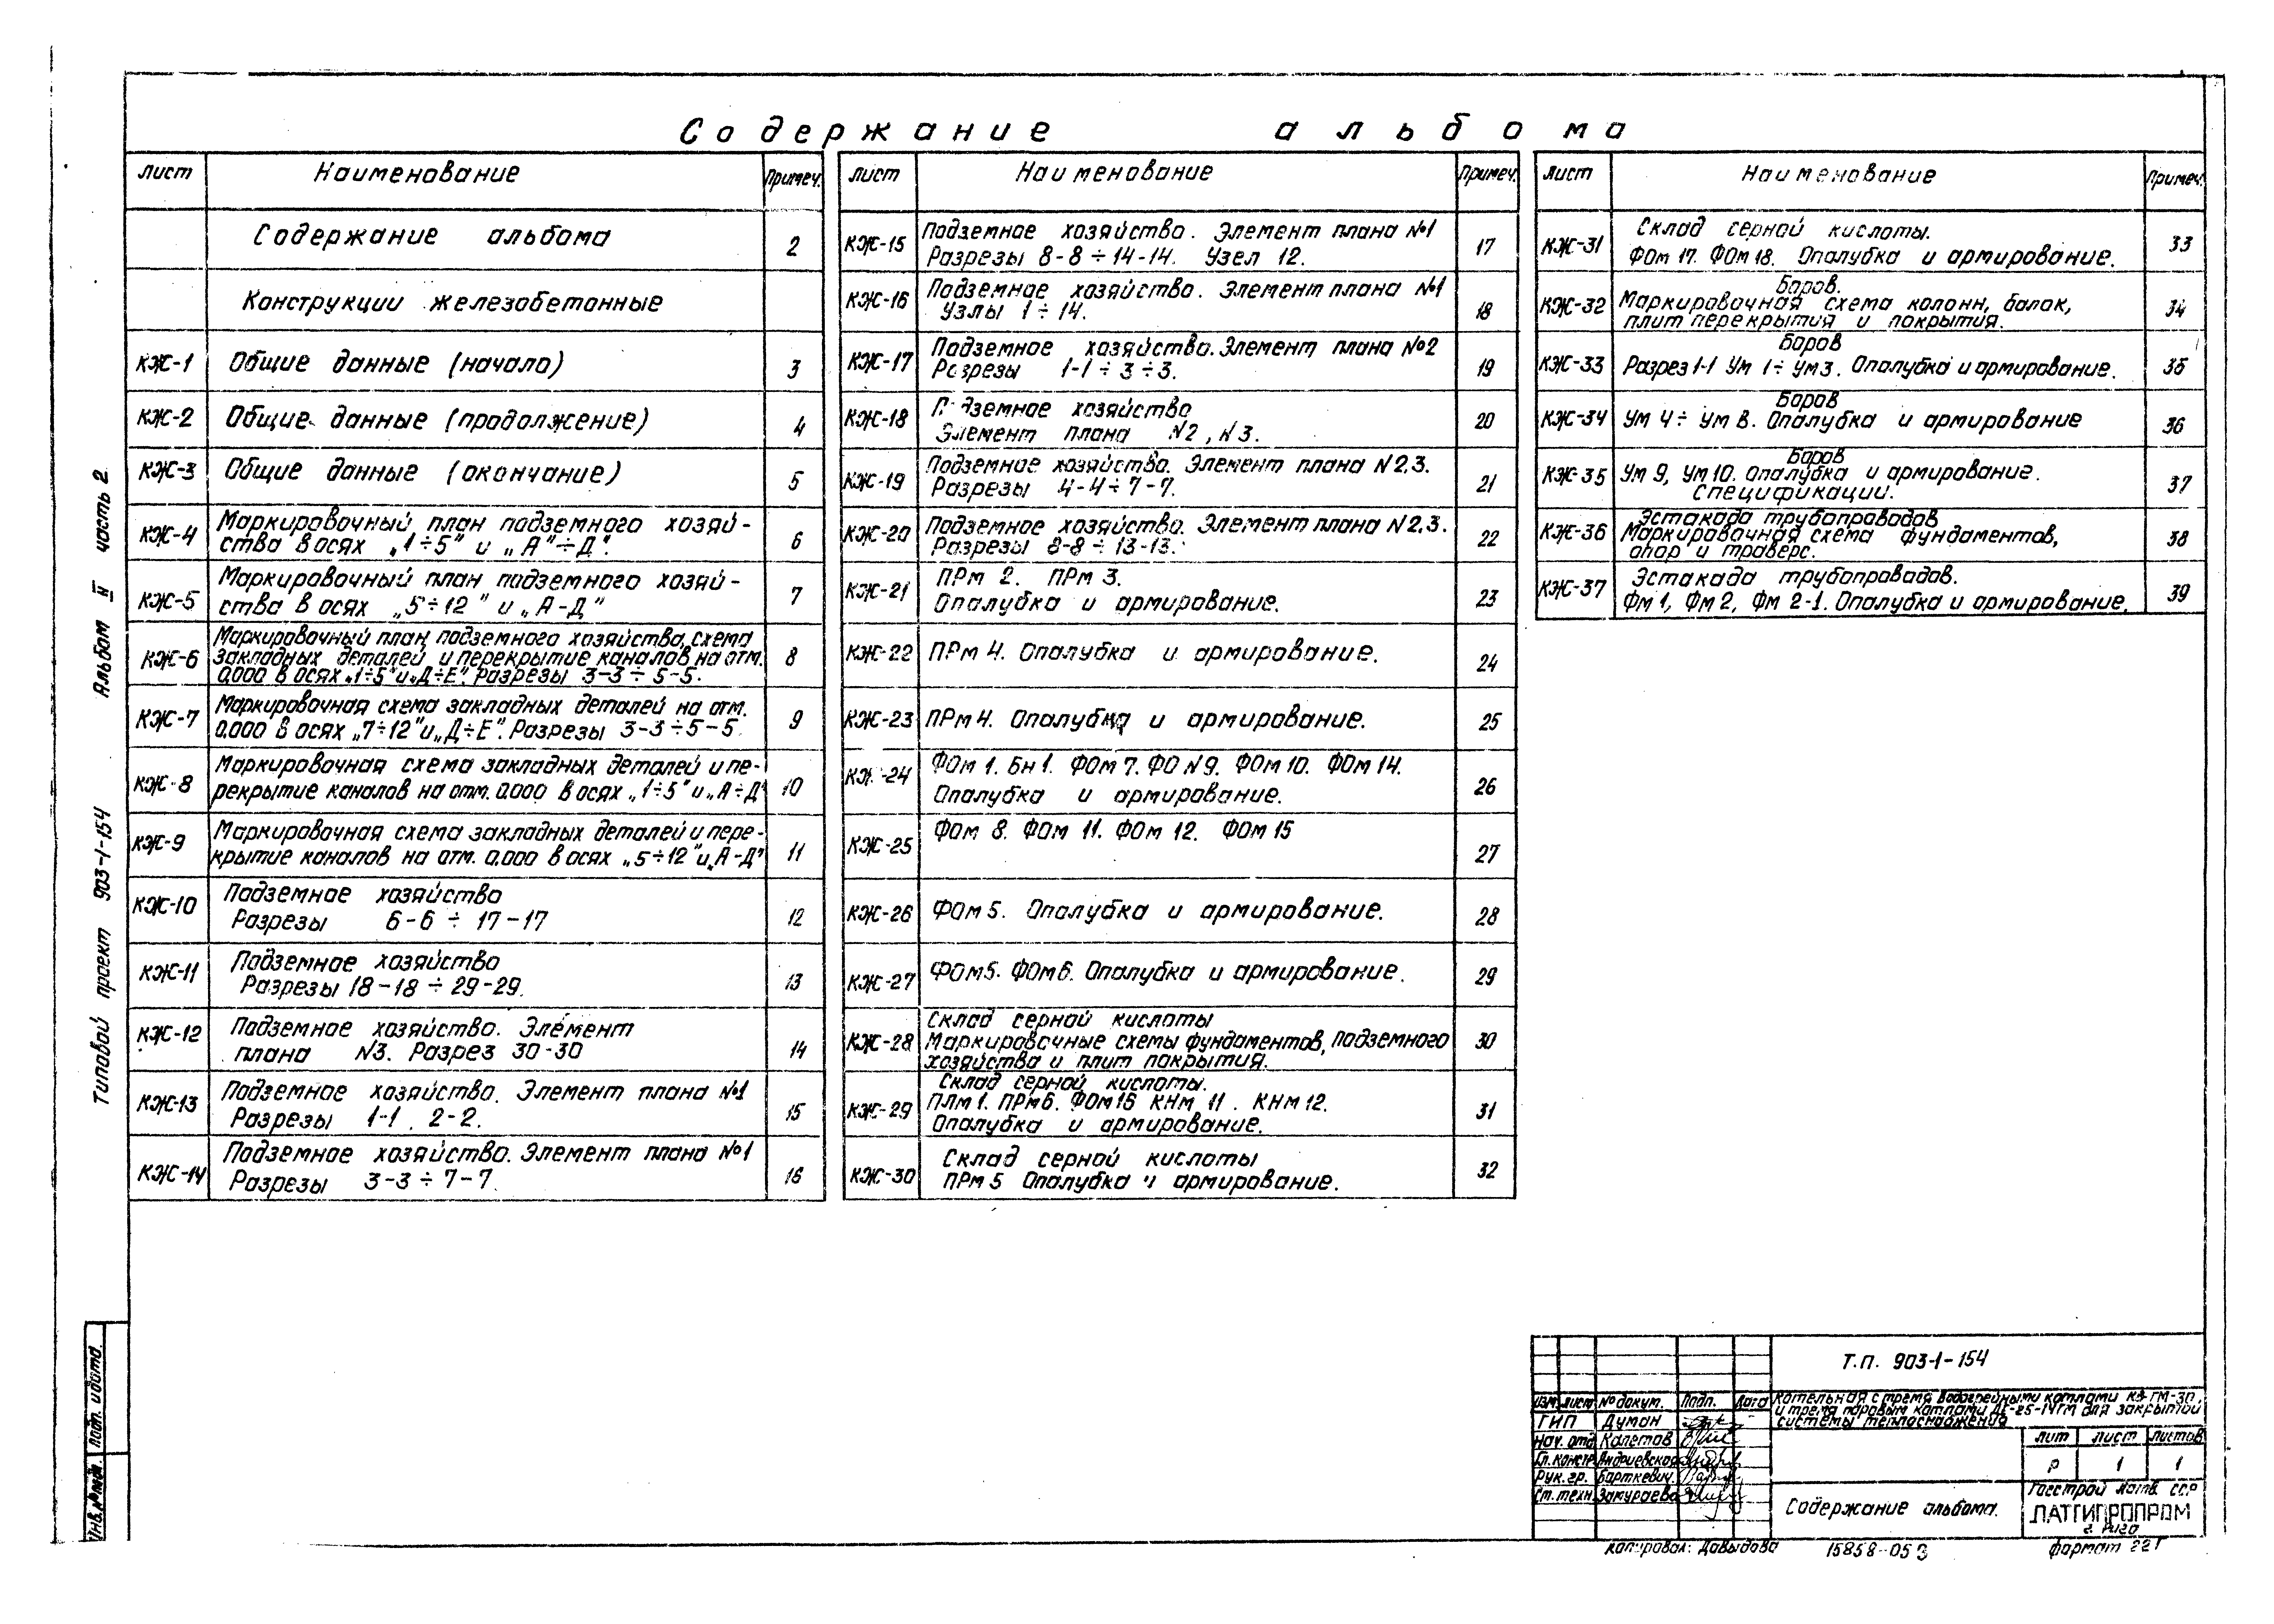 Содержание альбома
Лист Наименование Примеч.
Содержание альбома 2
Конструкции железобетонные
КЖ-1 Общие данные (начало) 3
КЖ-2 Общие данные (продолжение) 4
КЖ-3 Общие данные (окончание) 5
КЖ-4 Маркировочный план подземного хозяй-
ства в осях „1÷5" и „А"÷Д". 6
КЖ-5 Маркировочный план подземного хозяй-
ства в осях „5÷12" и „А-Д" 7
КЖ-6 Маркировочный план подземного хозяйства, схема
закладных деталей и перекрытие каналов на отм.
0,000 в осях „1÷5" и „Д÷Е". Разрезы 3-3 ÷ 5-5. 8
КЖ-7 Маркировочная схема закладных деталей на отм.
0,000 в осях „7÷12" и „Д÷Е". Разрезы 3-3÷5-5. 9
КЖ-8 Маркировочная схема закладных деталей и пе-
рекрытие каналов на отм. 0,000 в осях „1÷5" и „А÷Д" 10
КЖ-9 Маркировочная схема закладных деталей и пере-
крытие каналов на отм. 0,000 в осях „5÷12" и „А-Д" 11
КЖ-10 Подземное хозяйство
Разрезы 6-6 ÷ 17-17 12
КЖ-11 Подземное хозяйство
Разрезы 18-18 ÷ 29-29. 13
КЖ-12 Подземное хозяйство. Элемент
плана N3. Разрез 30-30 14
КЖ-13 Подземное хозяйство. Элемент плана №1
Разрезы 1-1, 2-2. 15
КЖ-14 Подземное хозяйство. Элемент плана №1
Разрезы 3-3 ÷ 7-7. 16
Лист Наименование Примеч.
КЖ-15 Подземное хозяйство. Элемент плана №1
Разрезы 8-8 ÷ 14-14. Узел 12. 17
КЖ-16 Подземное хозяйство. Элемент плана №1
Узлы 1 ÷ 14. 18
КЖ-17 Подземное хозяйство. Элемент плана №2
Разрезы 1-1 ÷ 3÷3. 19
КЖ-18 Подземное хозяйство
Элемент плана N2, N3. 20
КЖ-19 Подземное хозяйство. Элемент плана N2,3.
Разрезы 4-4÷7-7. 21
КЖ-20 Подземное хозяйство. Элемент плана N2,3.
Разрезы 8-8 ÷ 13-13. 22
КЖ-21 ПРм 2. ПРм 3.
Опалубка и армирование. 23
КЖ-22 ПРм 4. Опалубка и армирование. 24
КЖ-23 ПРм 4. Опалубка и армирование. 25
КЖ-24 ФОм 1. Бн 1. ФОм 7. ФО N9. ФОм 10. ФОм 14.
Опалубка и армирование. 26
КЖ-25 ФОм 8. ФОм 11. ФОм 12. ФОм 15 27
КЖ-26 ФОм 5. Опалубка и армирование. 28
КЖ-27 ФОм5. ФОм6. Опалубка и армирование. 29
КЖ-28 Склад серной кислоты
Маркировочные схемы фундаментов, подземного
хозяйства и плит покрытия. 30
КЖ-29 Склад серной кислоты.
ПЛм 1. ПРм6. ФОм16 КНм 11. КНм 12.
Опалубка и армирование. 31
КЖ-30 Склад серной кислоты
ПРм 5 Опалубка и армирование. 32
Лист Наименование Примеч.
КЖ-31 Склад серной кислоты.
ФОм 17. ФОм 18. Опалубка и армирование. 33
КЖ-32 Боров.
Маркировочная схема колонн, балок,
плит перекрытия и покрытия. 34
КЖ-33 Боров
Разрез 1-1 Ум 1÷ Ум3. Опалубка и армирование. 35
КЖ-34 Боров
Ум 4 ÷ Ум 8. Опалубка и армирование 36
КЖ-35 Боров
Ум 9, Ум 10. Опалубка и армирование.
Спецификации. 37
КЖ-36 Эстакада трубопроводов
Маркировочная схема фундаментов,
опор и траверс. 38
КЖ-37 Эстакада трубопроводов.
Фм 1, Фм 2, Фм 2-1. Опалубка и армирование. 39
Типовой проект 903-1-154 Альбом II часть 2
Инв.№подл. Подп. и дата.
Т.П. 903-1-154
Изм. Лист № докум. Подп. Дата
Котельная с тремя водогрейными котлами КВ-ГМ-30
и тремя паровым котлами ДЕ-25-14ГМ для закрытой
системы теплоснабжения
ГИП Думан
Нач. отд Калетов
Гл. констр Андриевская
Рук. гр. Барткевич.
Ст. техн.
Лит Лист Листов
Р 1 1
Содержание альбома.
Госстрой Латв. ССР
ЛАТГИПРОПРОМ
г. Рига
Копировал: Давыдова 15858-05 3 формат 22Г